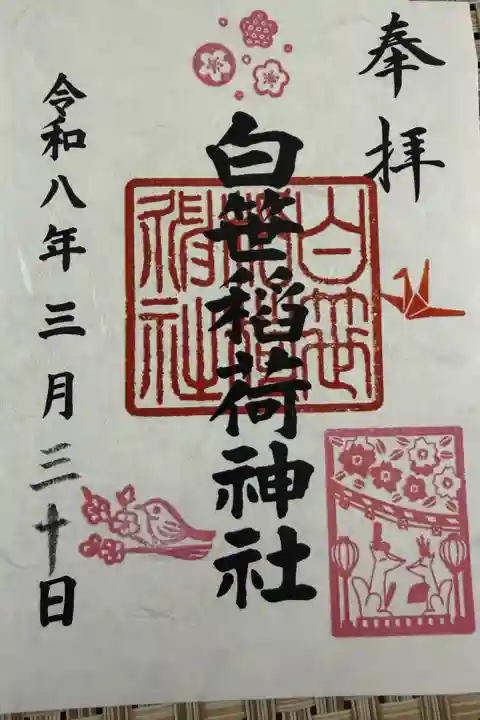 奉拝
白笹稲荷神社
白笹
稲荷
神社
令和八年三月三十日